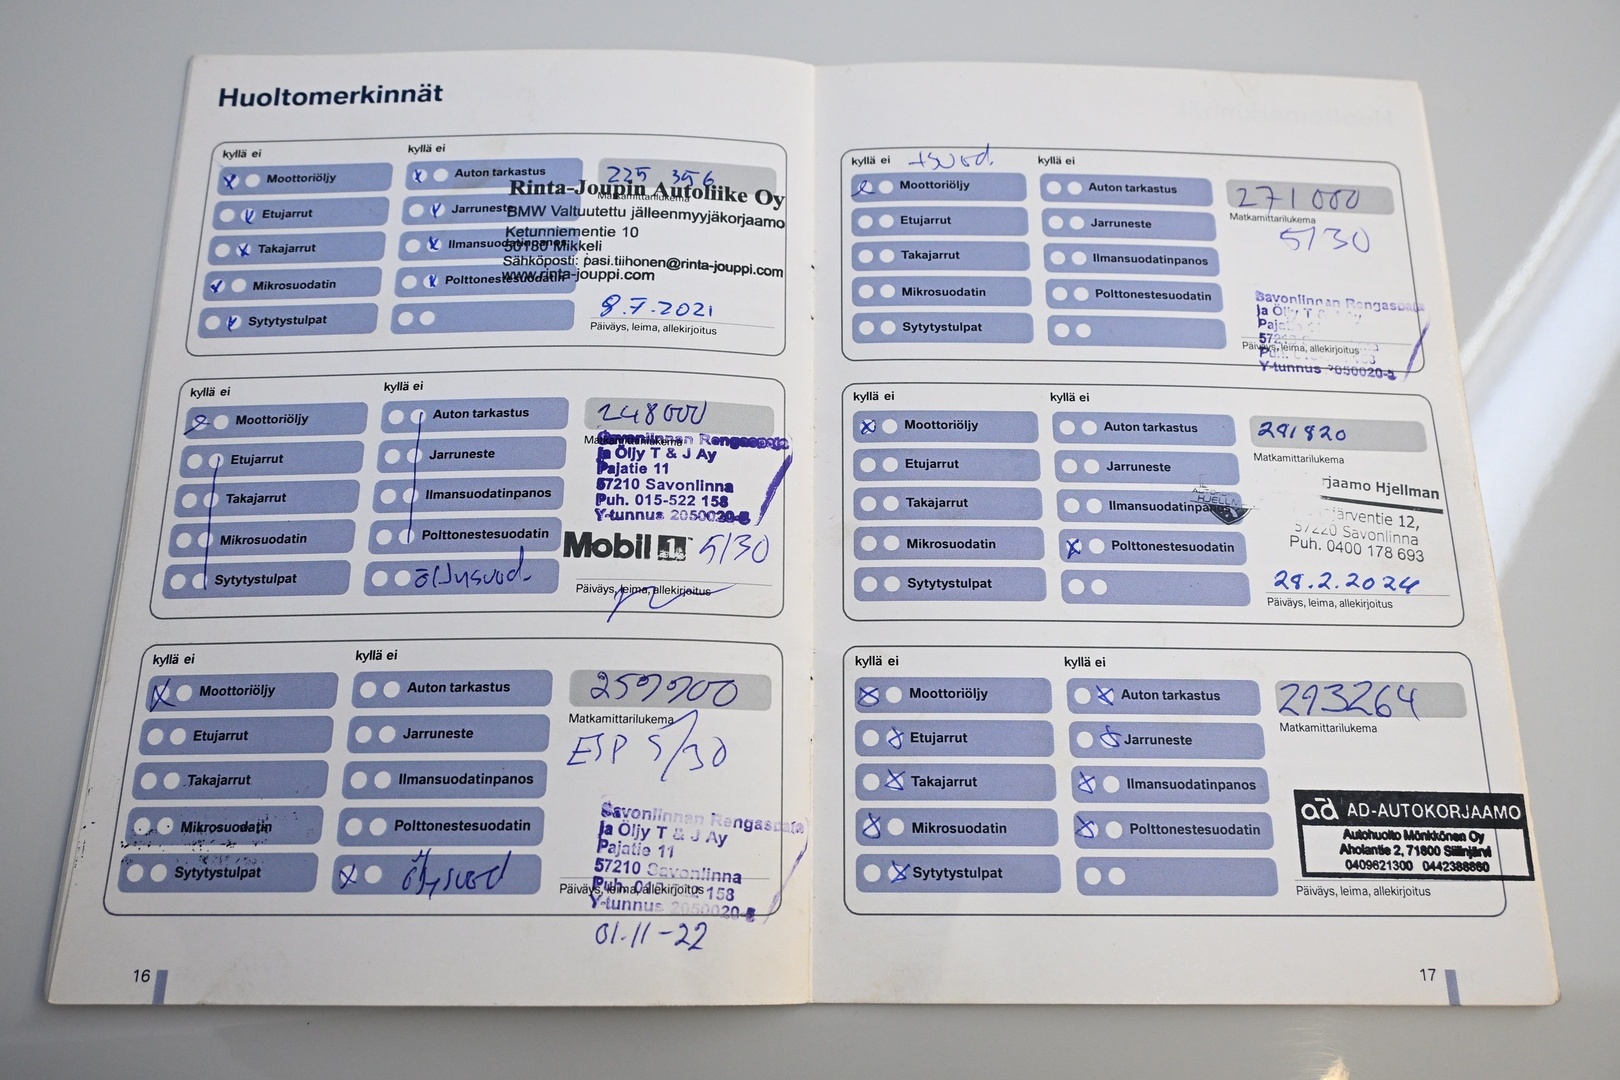 Huoltomerkinnät
kyllä ei
kyllä ei
Moottoriöljy
Auton tarkastus
225 356
Matkamittarilukema
Etujarrut
Jarruneste
Takajarrut
Ilmansuodatinpanos
Mikrosuodatin
Polttonestesuodatin
Sytytystulpat
Rinta-Joupin Autoliike Oy
BMW Valtuutettu jälleenmyyjäkorjaamo
Ketunniementie 10
50180 Mikkeli
Sähköposti: pasi.tiihonen@rinta-jouppi.com
www.rinta-jouppi.com
8.7.2021
Päiväys, leima, allekirjoitus
kyllä ei
kyllä ei
Moottoriöljy
Auton tarkastus
248000
Matkamittarilukema
Etujarrut
Jarruneste
Takajarrut
Ilmansuodatinpanos
Mikrosuodatin
Polttonestesuodatin
Sytytystulpat
öljysuod.
Savonlinnan Rengaspata
ja Öljy T & J Ay
Pajatie 11
57210 Savonlinna
Puh. 015-522 158
Y-tunnus 2050020-8
Mobil 1 5/30
Päiväys, leima, allekirjoitus
kyllä ei
kyllä ei
Moottoriöljy
Auton tarkastus
259900
Matkamittarilukema
Etujarrut
Jarruneste
ESP 5/30
Takajarrut
Ilmansuodatinpanos
Mikrosuodatin
Polttonestesuodatin
Sytytystulpat
öljysuod
Savonlinnan Rengaspata
ja Öljy T & J Ay
Pajatie 11
57210 Savonlinna
Päiväys, leima, allekirjoitus
Y-tunnus 2050020-8
01.11-22
16
kyllä ei
+suod.
kyllä ei
Moottoriöljy
Auton tarkastus
271000
Matkamittarilukema
5/30
Etujarrut
Jarruneste
Takajarrut
Ilmansuodatinpanos
Mikrosuodatin
Polttonestesuodatin
Sytytystulpat
Savonlinnan Rengaspata
ja Öljy T
Päiväys, leima, allekirjoitus
Y-tunnus 2050020-8
kyllä ei
kyllä ei
Moottoriöljy
Auton tarkastus
281820
Matkamittarilukema
Etujarrut
Jarruneste
Takajarrut
Ilmansuodatinpanos
Mikrosuodatin
Polttonestesuodatin
Sytytystulpat
rjaamo Hjellman
järventie 12,
57220 Savonlinna
Puh. 0400 178 693
28.2.2024
Päiväys, leima, allekirjoitus
kyllä ei
kyllä ei
Moottoriöljy
Auton tarkastus
293264
Matkamittarilukema
Etujarrut
Jarruneste
Takajarrut
Ilmansuodatinpanos
Mikrosuodatin
Polttonestesuodatin
Sytytystulpat
ad AD-AUTOKORJAAMO
Autohuolto Mönkkönen Oy
Aholantie 2, 71800 Siilinjärvi
0409621300 0442388860
Päiväys, leima, allekirjoitus
17